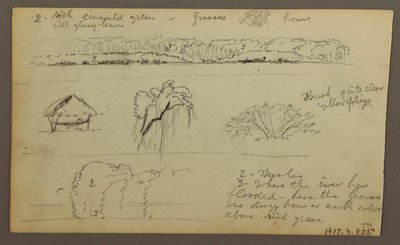 2 - rich emerald green - grasses brown
with glossy leaves
2
Brush quite clear
yellow foliage
2
3
2 - Bushes
3 - Where the river has
flooded - here the leaves
are dingy brown or earth color
above rich green
1917.4.805